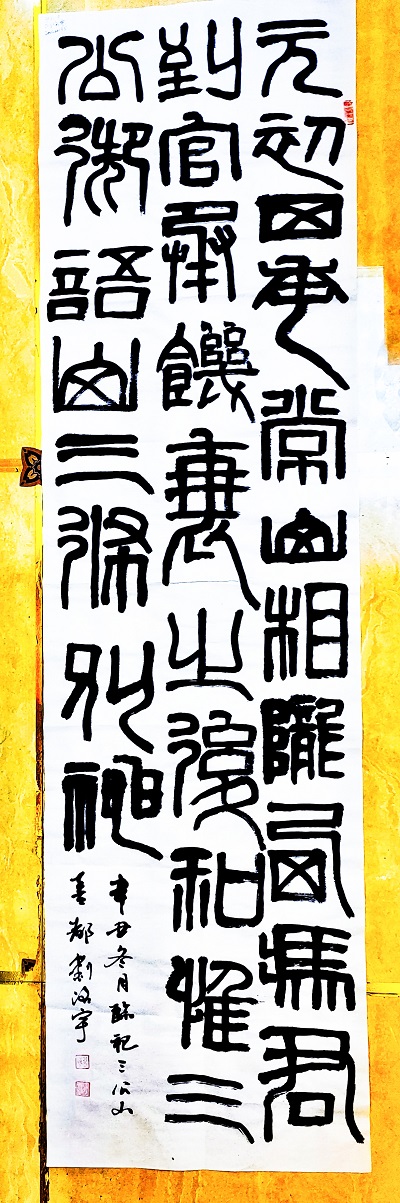 元初四年常山相隴西馮君
到官承饑衰之後和惟三
公御語山三條別神
辛丑冬月臨祀三公山
都劉宇